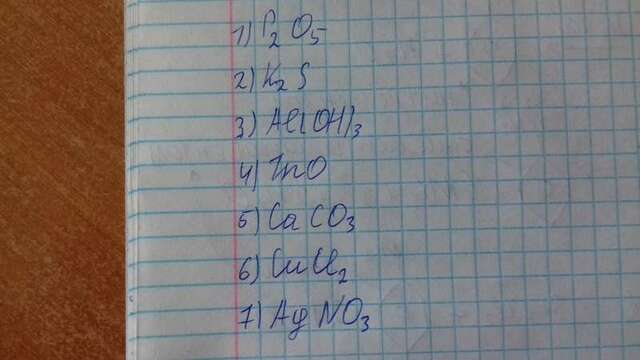 1) P₂O₅
2) K₂S
3) Al(OH)₃
4) ZnO
5) CaCO₃
6) CuCl₂
7) AgNO₃